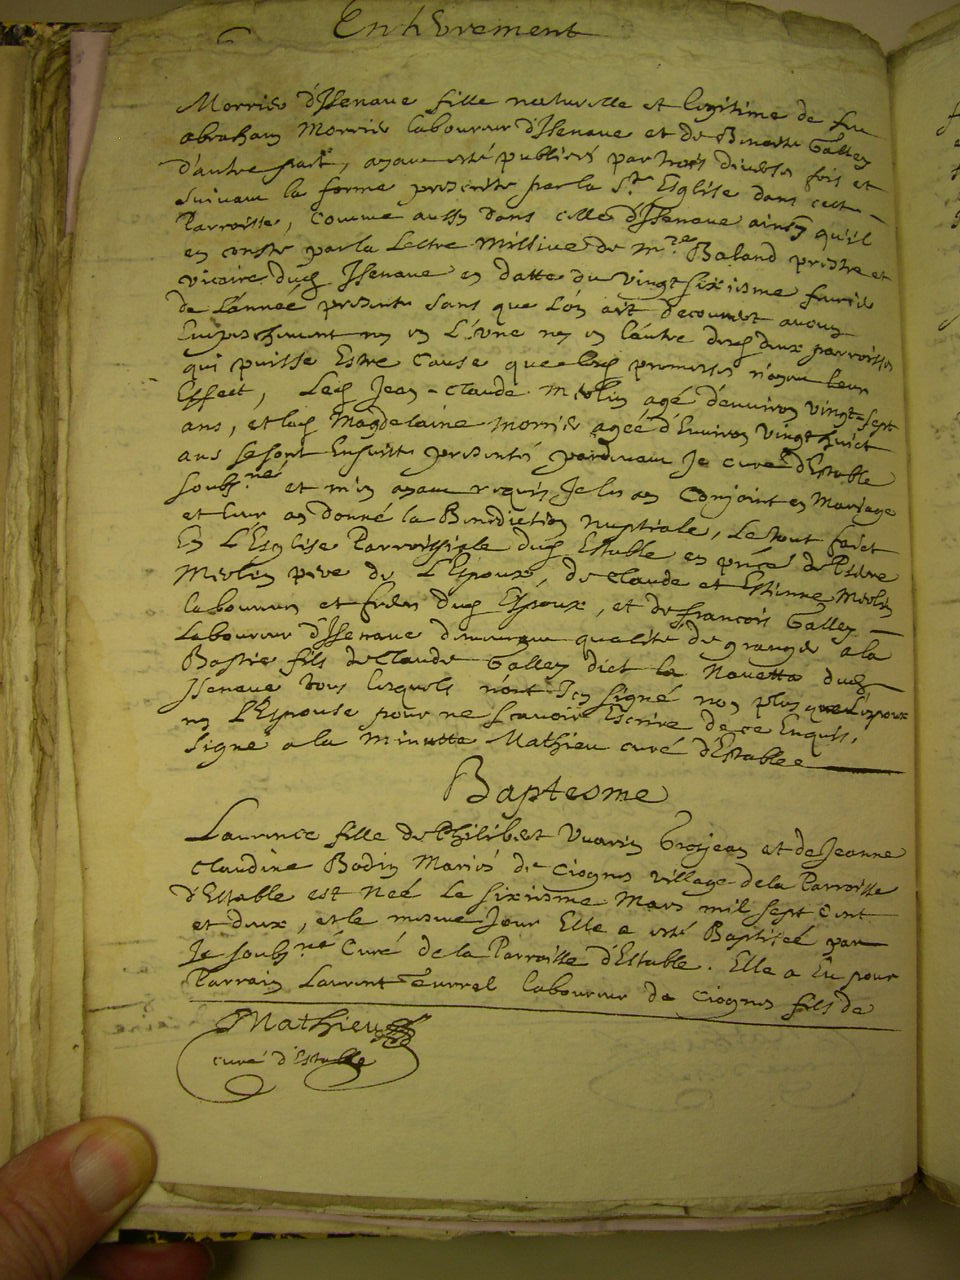 Enterrement
Morrier d'Isenave fille naturelle et legitime de feu
abraham Morrier laboureur d'Isenave et de Benoite Galley
d'autre part, ayant esté publiés par trois diverses fois et
suivant la forme prescrite par la Ste Esglise dans cette
Parroisse, comme aussy dans celle d'Isenave ainsy qu'il
en conste par la Lettre missive de mre Baland prestre et
vicaire dud Isenave en datte du vingt sixiesme fevrier
de l'année presente sans que l'on ait decouvert aucun
Empeschement ny en L'une ny en l'autre desd deux parroisses
qui puisse Estre cause que lesd promesses n'ayent leur
Effect, Led Jean-Claude Merlin agé d'environ vingt-sept
ans, et lad Magdelaine Morrier agée d'Environ vingt huict
ans se sont Ensuitte presentés pardevant Je curé d'Estable
soubs.né et m'en ayant requis Je les ay Conjoint en Mariage
et leur ay donné la Benediction nuptiale, Le tout faict
En L'Esglise Parroissiale dud Estable en prnce de Pierre
Merlin pere de L'Espoux, de Claude et Estienne Merlin
laboureurs et freres dud Espoux, et de francois Galley
Laboureur d'Isenave demeurant qualité de granger a la
Bastie fils de Claude Galley dict la Navetta dud
Isenave tous lesquels n'ont Icy signé non plus que L'espoux
ny L'Espouse pour ne scavoir Escrire de ce Enquis,
Signé a la minutte Mathieu curé d'Estable
Baptesme
Laurence fille de Philibert Vuarin Grosjean et de Jeanne
Claudine Bodin Mariés de Ciognes village de la Parroisse
d'Estable est Neé Le sixiesme Mars mil sept cent
et deux, et le mesme Jour Elle a esté Baptiseé par
Je soubs.né Curé de la Parroisse d'Estable. Elle a Eu pour
Parrain Laurent Teurrel laboureur de Ciognes fils de
Mathieu
curé d'Estable